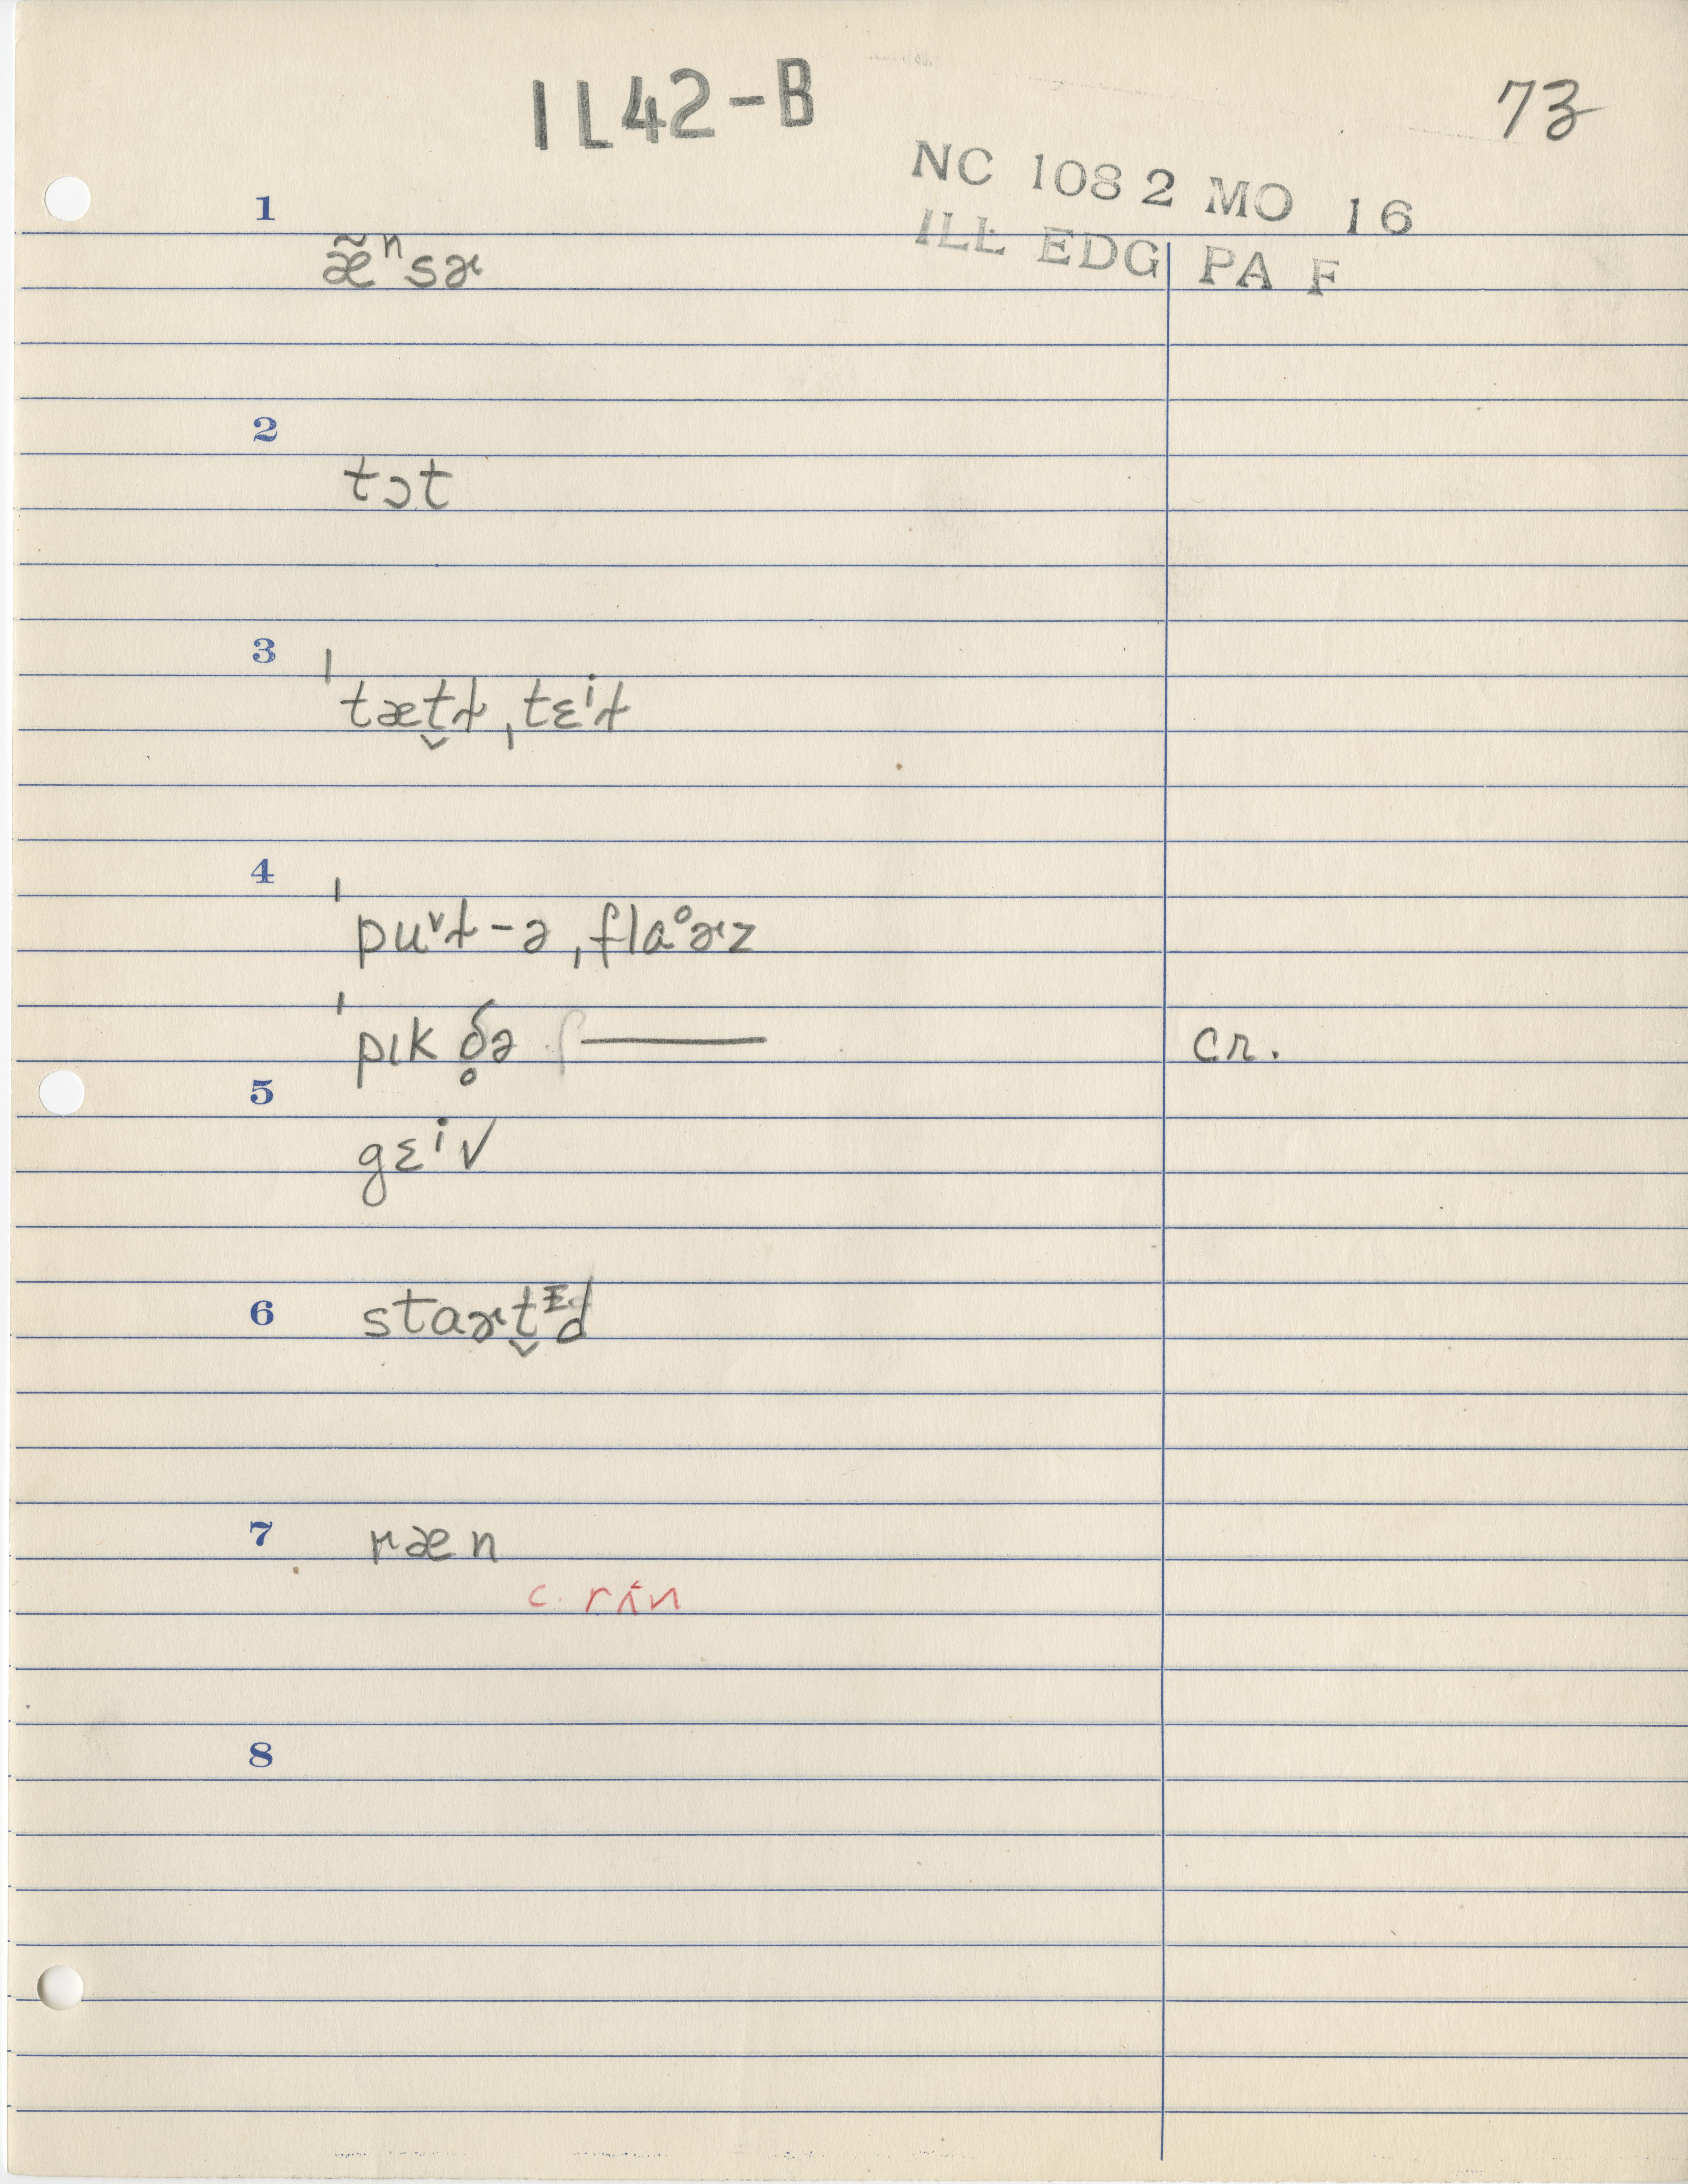 IL42-B
73
NC 108 2 MO 16
ILL EDG PA F
1
æ̃ⁿsɚ
2
tɔt
3
ˈtæt̬ɫ ˌtɛⁱɫ
4
ˈpuᵛɫ-ə ˌflɑ°ɚz
ˈpɪk ð̥ə ſ——— cr.
5
gɛⁱv
6
stɑɚt̬ᴵd
7
ræn
c. rɨn
8